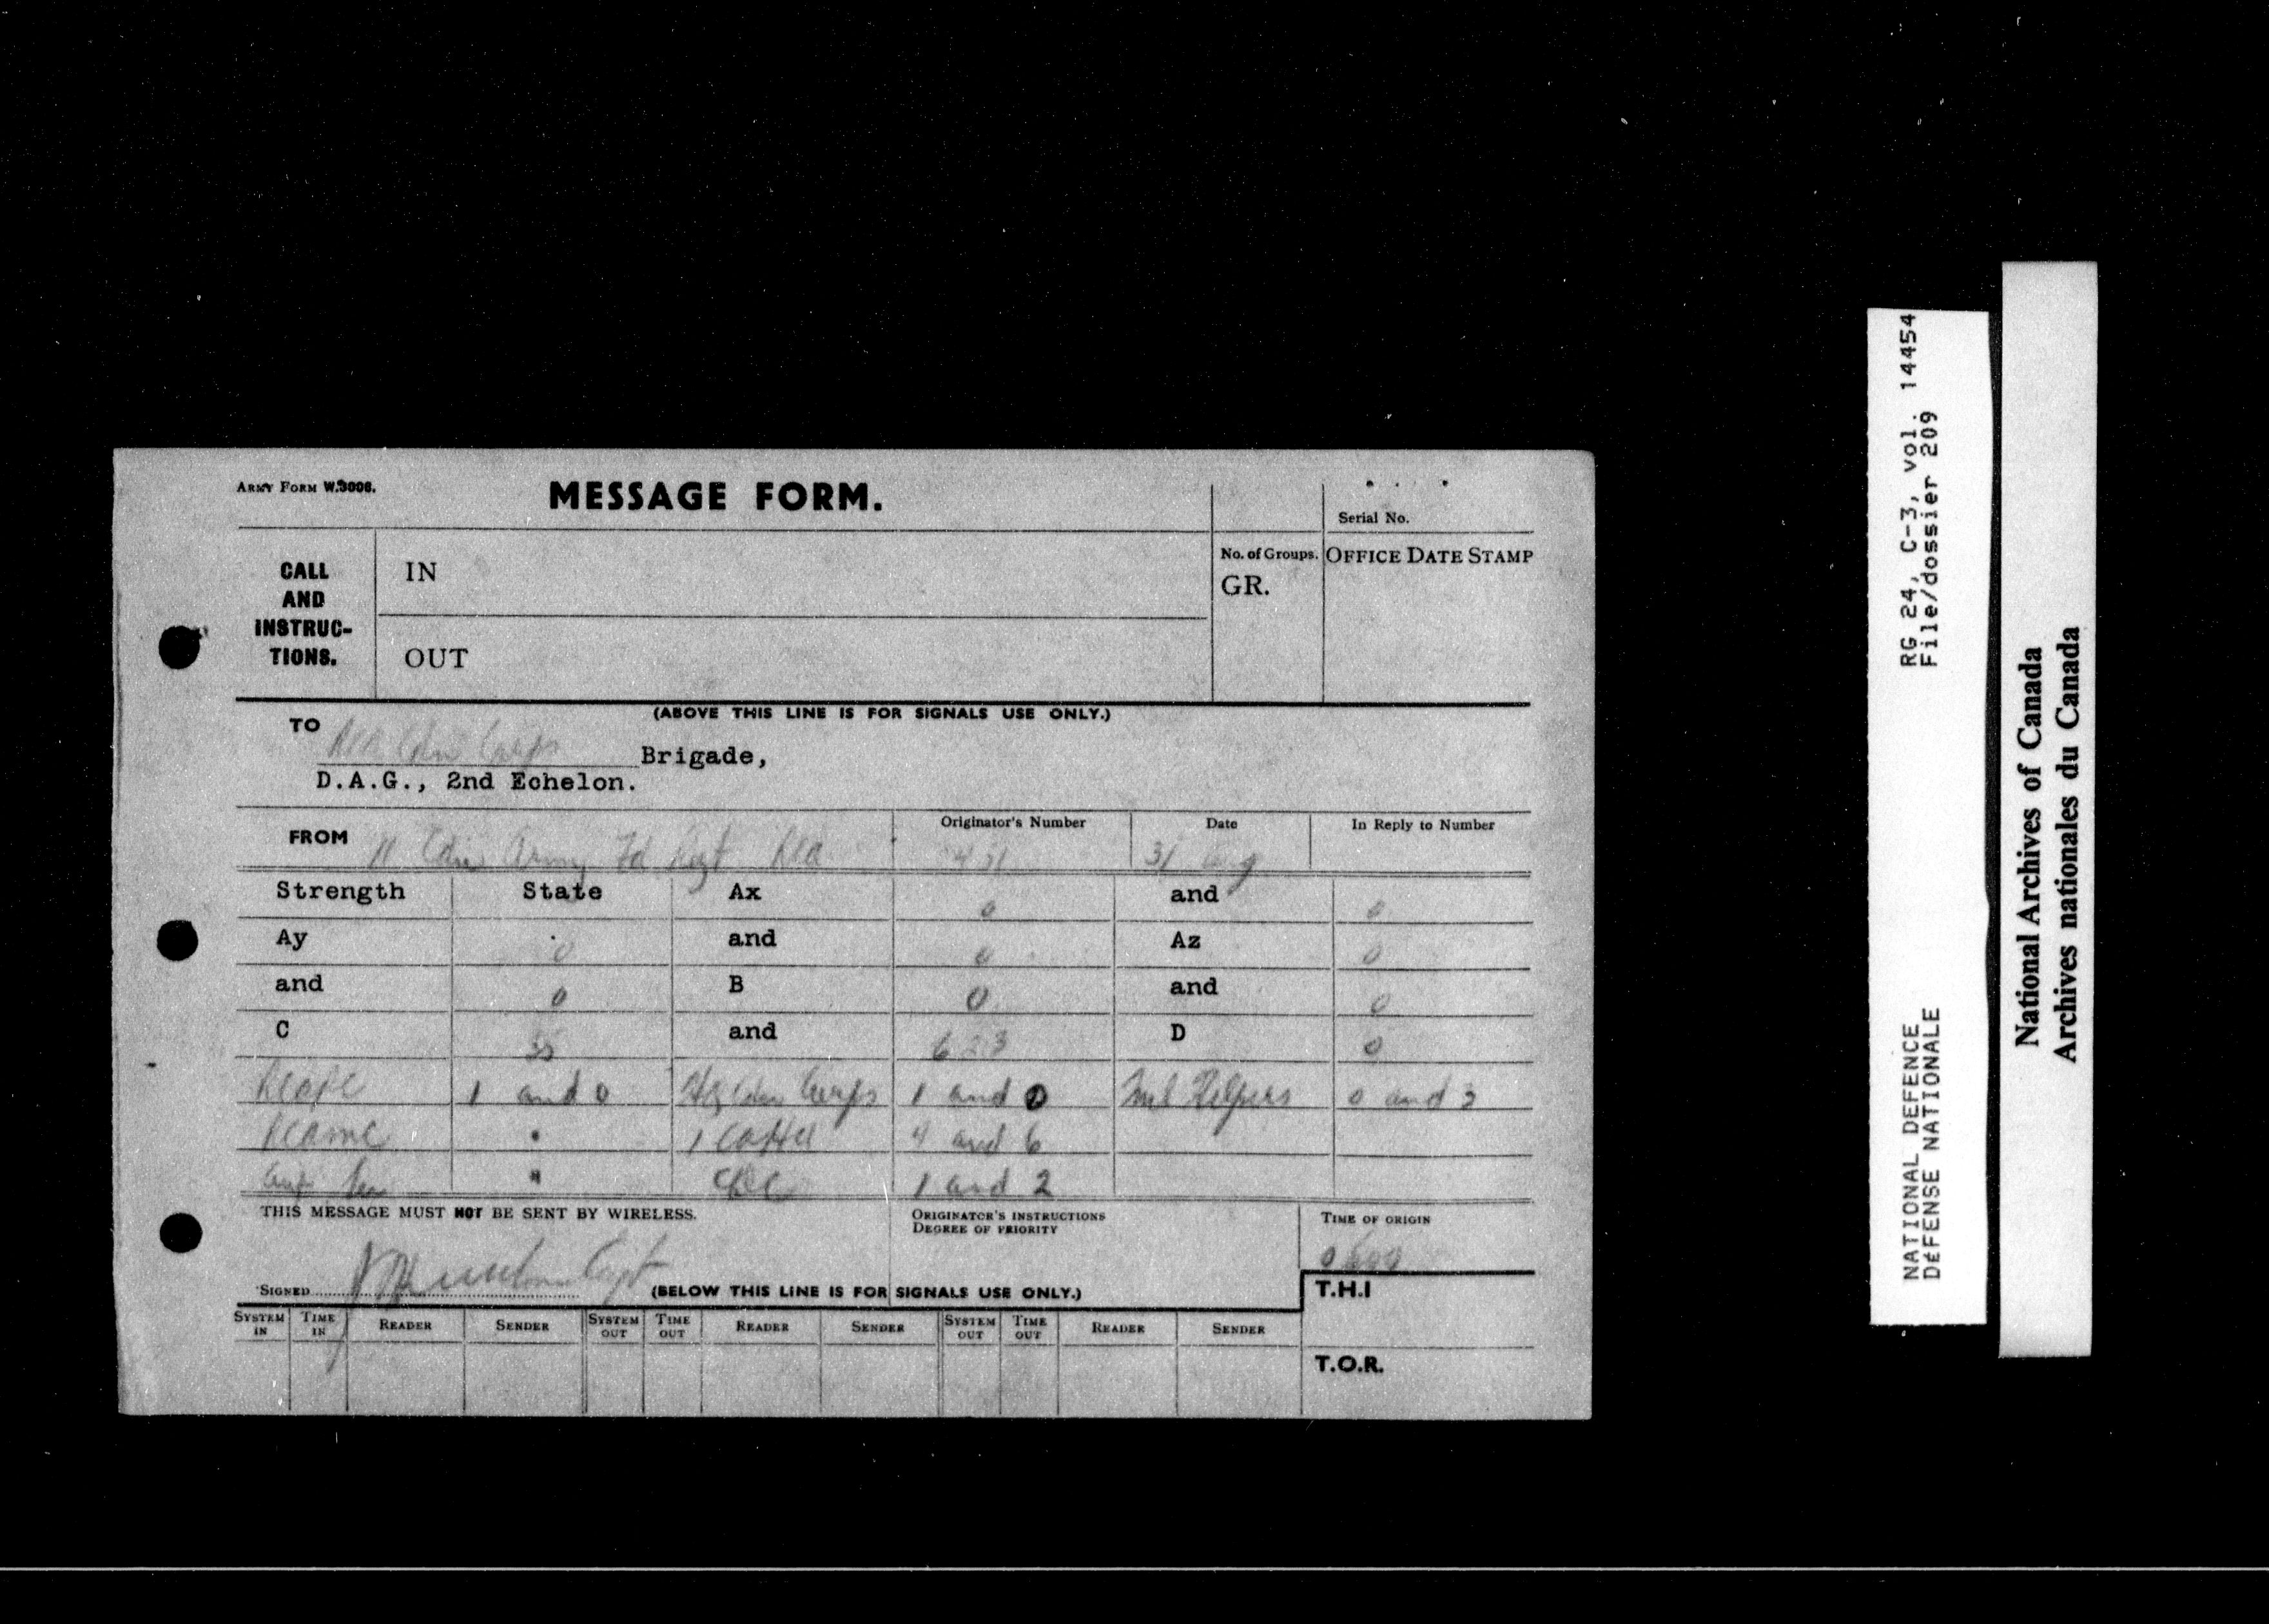 ARMY FORM W.3006.
MESSAGE FORM.
Serial No.
CALL AND INSTRUC-TIONS.
IN
OUT
No. of Groups.
GR.
OFFICE DATE STAMP
(ABOVE THIS LINE IS FOR SIGNALS USE ONLY.)
TO
RCA Cdn Corps Brigade,
D.A.G., 2nd Echelon.
FROM 11 Cdn Army Fd Regt RCA
Originator's Number
Date 31 Aug
In Reply to Number
Strength State Ax 0 and 0
Ay 0 and 0 Az 0
and 0 B 0 and 0
C 35 and 623 D 0
1 and 0 HQ Cdn Corps 1 and 0 0 and 3
" 4 and 6
" CDC 1 and 2
THIS MESSAGE MUST NOT BE SENT BY WIRELESS.
ORIGINATOR'S INSTRUCTIONS
DEGREE OF PRIORITY
TIME OF ORIGIN
SIGNED Capt
(BELOW THIS LINE IS FOR SIGNALS USE ONLY.)
T.H.I
SYSTEM IN TIME IN READER SENDER SYSTEM OUT TIME OUT READER SENDER SYSTEM OUT TIME OUT READER SENDER
T.O.R.
RG 24, C-3, vol. 14454
File/dossier 209
NATIONAL DEFENCE
DéFENSE NATIONALE
National Archives of Canada
Archives nationales du Canada